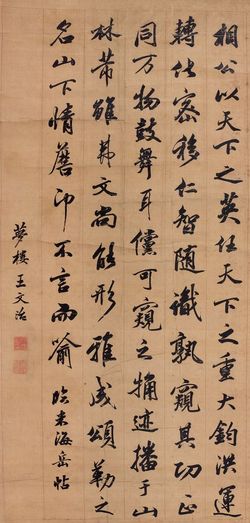 相公以天下之英任天下之重大鈞洪運
轉化密移仁智隨識孰窺其功正
同万物鼓舞耳儻可窺之補迹播于山
林芾雖弗文尚能形雅成頌勒之
名山下情蘄印不言而喻 臨米海岳帖
夢樓王文治